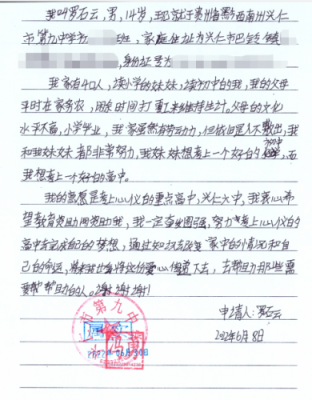 我叫罗石云，男，14岁，现就读于贵州省黔西南州兴仁
市第九中学 班，家庭住址为兴仁市巴铃镇
，身份证号为
我家有4口人，读小学的妹妹，读初中的我，我的父母
平时在家务农，闲时间打工来维持生计。父母的文化
水平不高，小学毕业，我家虽然有劳动力，但依旧是入不敷出，我
和我妹妹都非常努力，我妹妹想考上一个好的初中，而
我想考上一个好的高中。
我的愿望是考上心仪的重点高中，兴仁大中，我衷心希
望教育资助网资助我，我一定奋发图强，努力考上心仪的
高中来完成自己的梦想，通过知识去改变家中的情况和自
己的命运，将来我也会将这份爱心相递下去，去帮助那些需
要帮助的人。谢谢！谢谢！
申请人：罗石云
2022年6月8日
市第九中
2022年06月30日